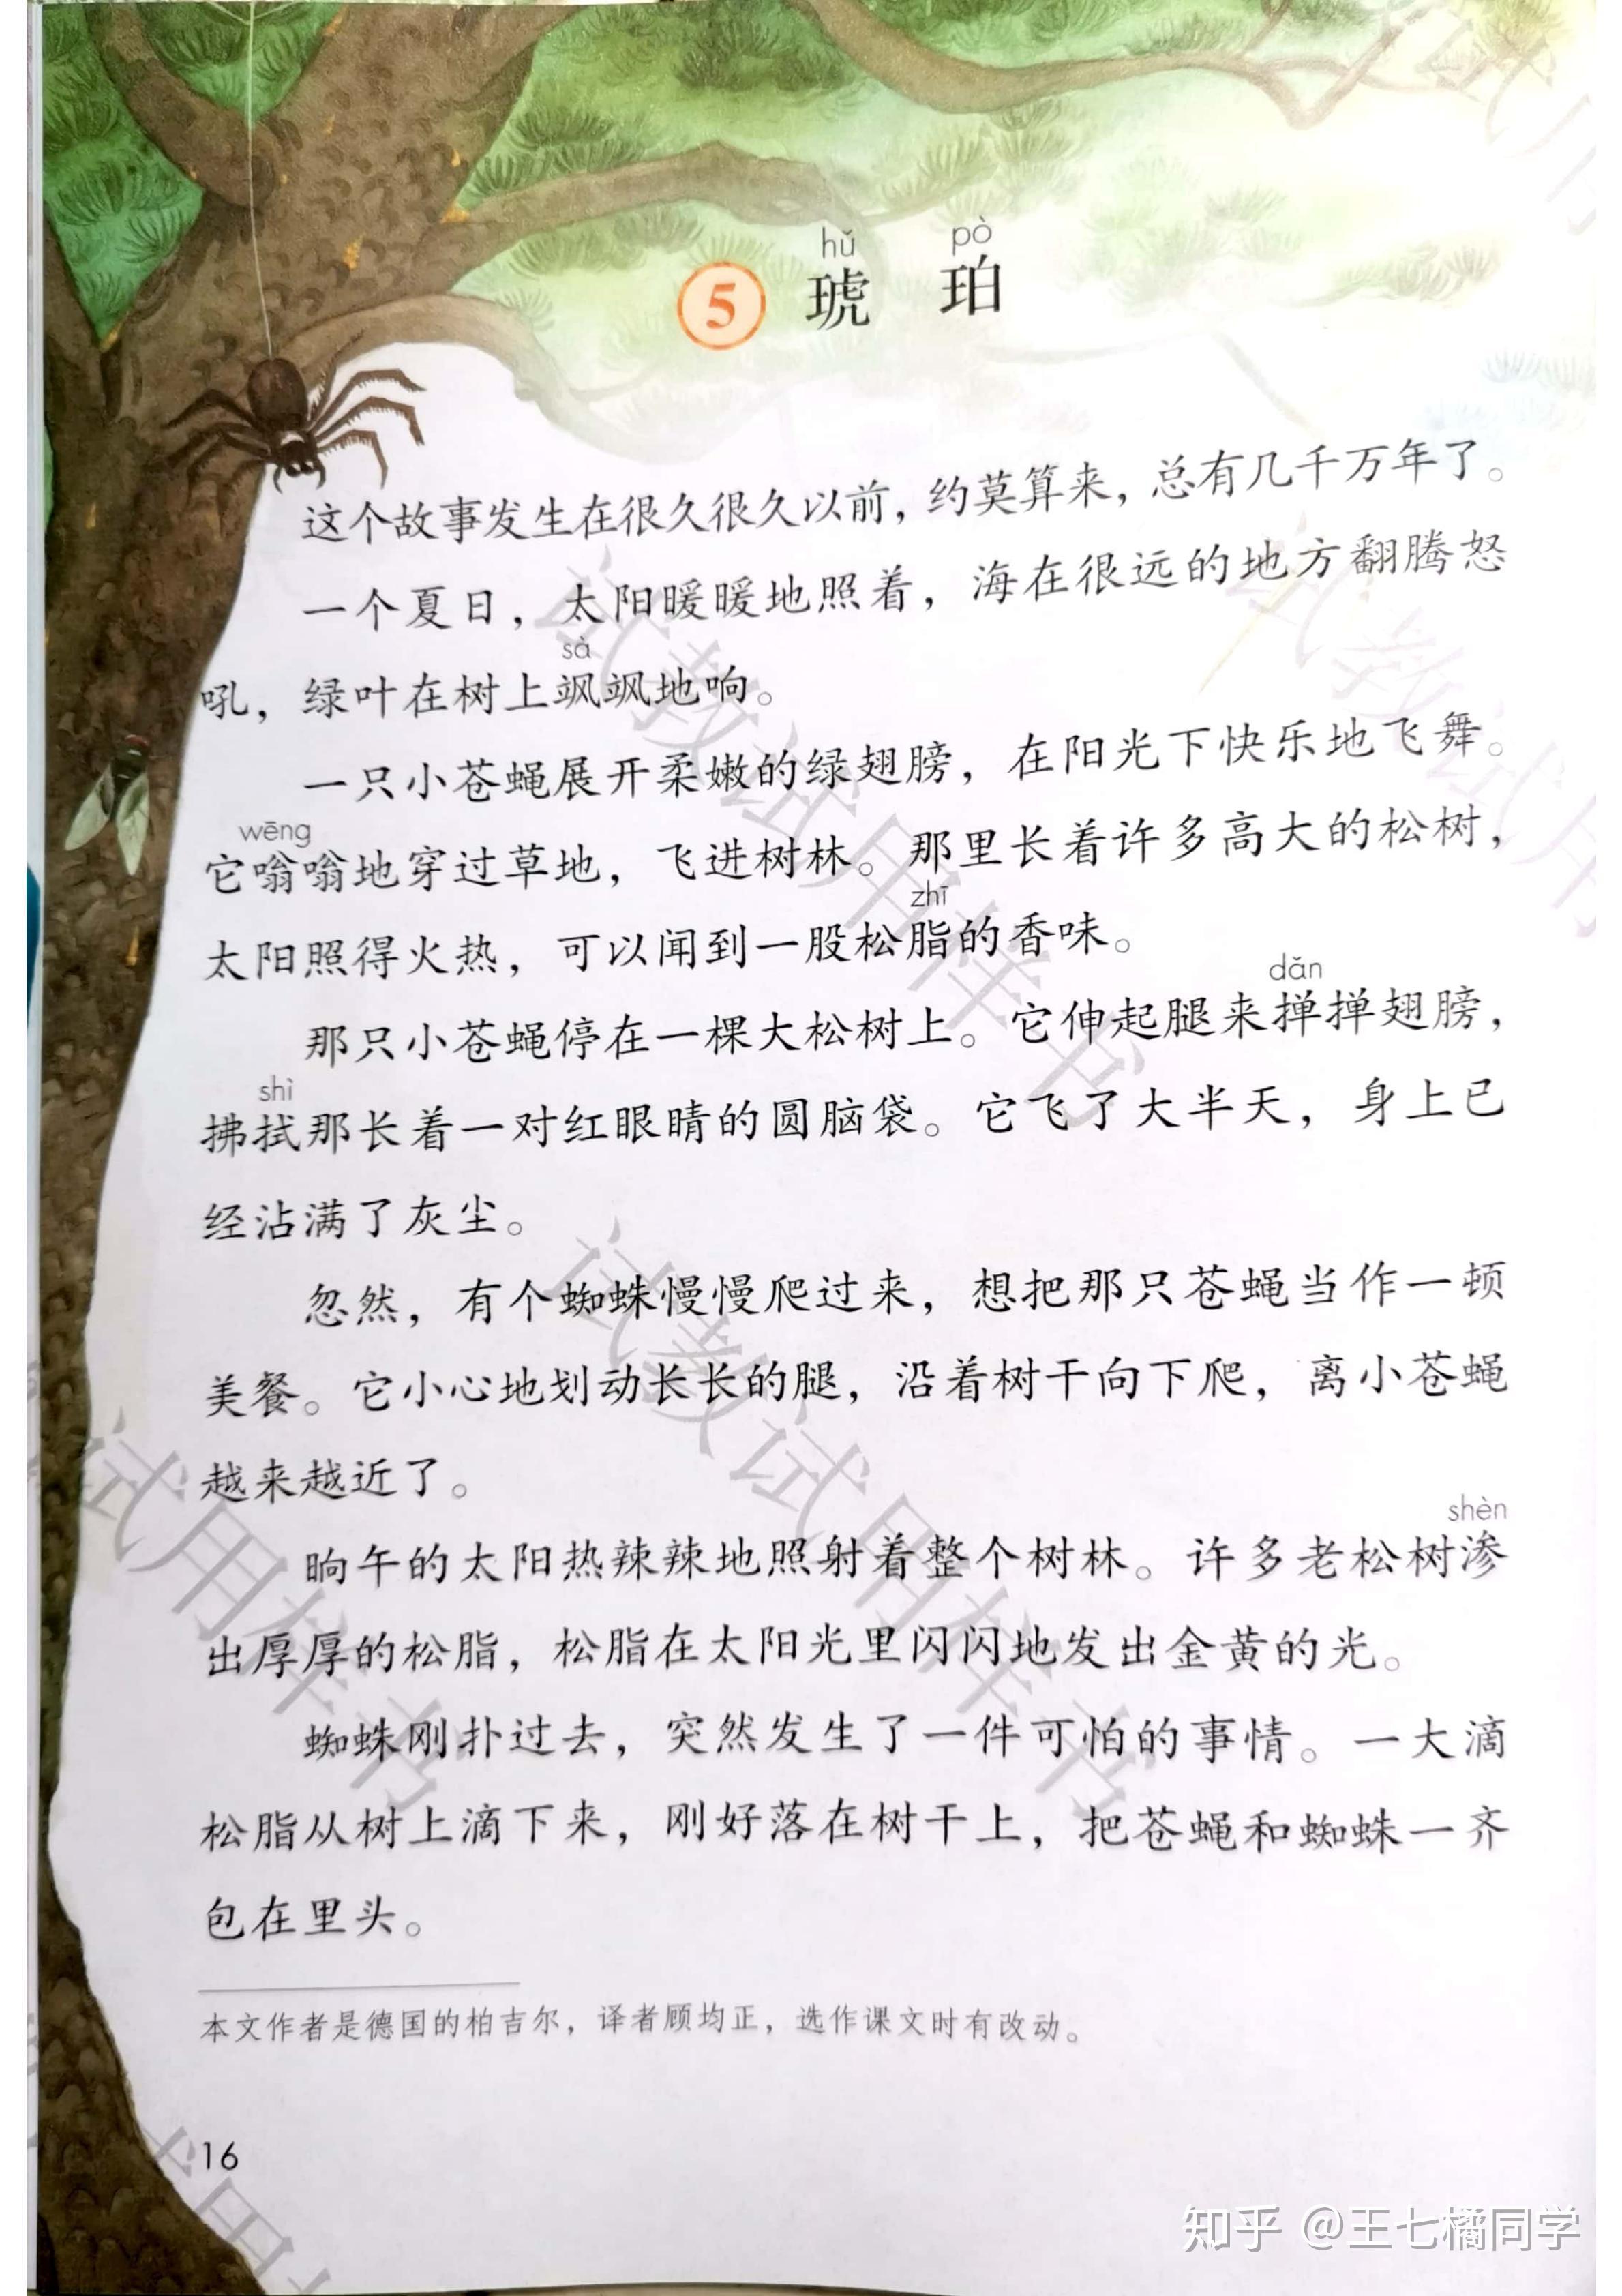 hǔ pò
5 琥珀
这个故事发生在很久很久以前，约莫算来，总有几千万年了。
一个夏日，太阳暖暖地照着，海在很远的地方翻腾怒
sà
吼，绿叶在树上飒飒地响。
一只小苍蝇展开柔嫩的绿翅膀，在阳光下快乐地飞舞。
wēng
它嗡嗡地穿过草地，飞进树林。那里长着许多高大的松树，
zhī
太阳照得火热，可以闻到一股松脂的香味。
dǎn
那只小苍蝇停在一棵大松树上。它伸起腿来掸掸翅膀，
shì
拂拭那长着一对红眼睛的圆脑袋。它飞了大半天，身上已
经沾满了灰尘。
忽然，有个蜘蛛慢慢爬过来，想把那只苍蝇当作一顿
美餐。它小心地划动长长的腿，沿着树干向下爬，离小苍蝇
越来越近了。
shèn
晌午的太阳热辣辣地照射着整个树林。许多老松树渗
出厚厚的松脂，松脂在太阳光里闪闪地发出金黄的光。
蜘蛛刚扑过去，突然发生了一件可怕的事情。一大滴
松脂从树上滴下来，刚好落在树干上，把苍蝇和蜘蛛一齐
包在里头。
本文作者是德国的柏吉尔，译者顾均正，选作课文时有改动。
16
试教试用样书
试教试用样书
试教试用
试用样书
试用
知乎 @王七橘同学